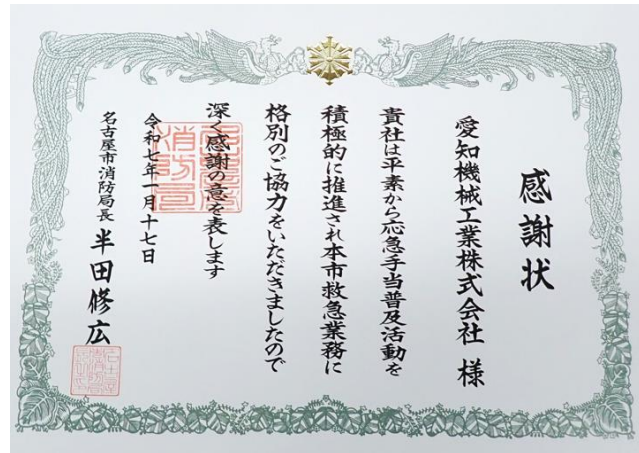 感謝状
愛知機械工業株式会社 様
貴社は平素から応急手当普及活動を
積極的に推進され本市救急業務に
格別のご協力をいただきましたので
深く感謝の意を表します
令和七年一月十七日
名古屋市消防局長 半田修広